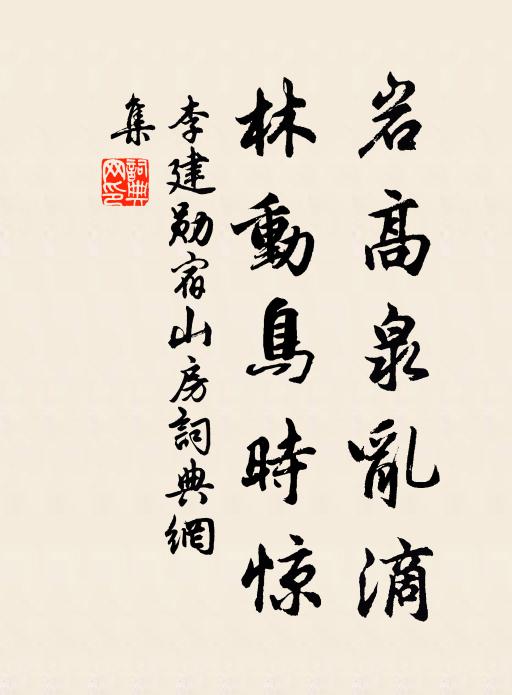 岩高泉亂滴
林動鳥時惊
李建勛宿山房詞典網
集
詞典網印